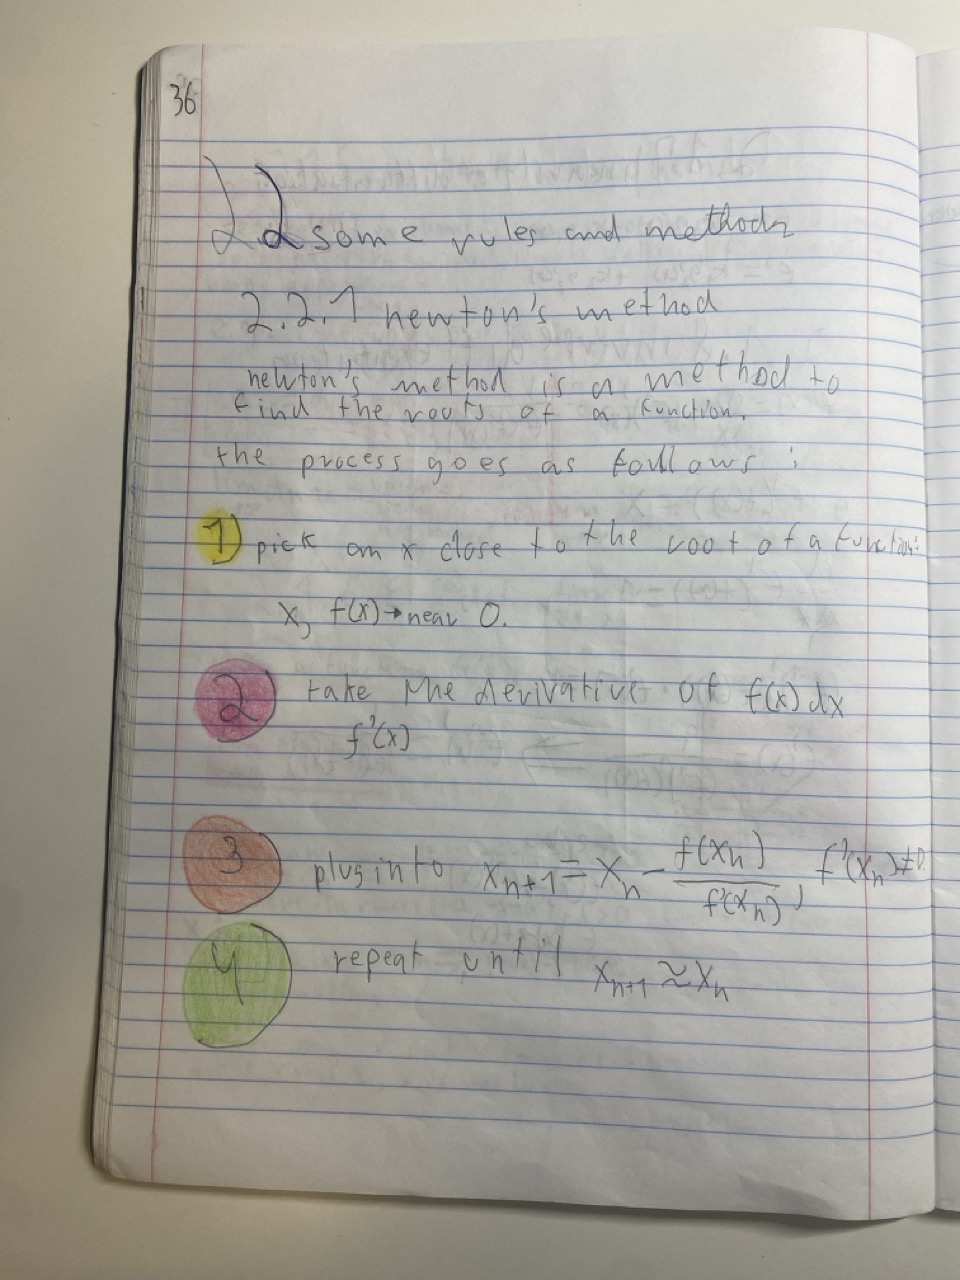 36
2.2 some rules and methods
2.2.1 newton's method
newton's method is a method to
find the roots of a function.
the process goes as follows:
1) pick an x close to the root of a function:
x, f(x)→near 0.
2 take the derivative of f(x)dx
f'(x)
3 plug into xₙ₊₁ = xₙ - f(xₙ)/f'(xₙ), f'(xₙ)≠0
4 repeat until xₙ₊₁ ≈ xₙ